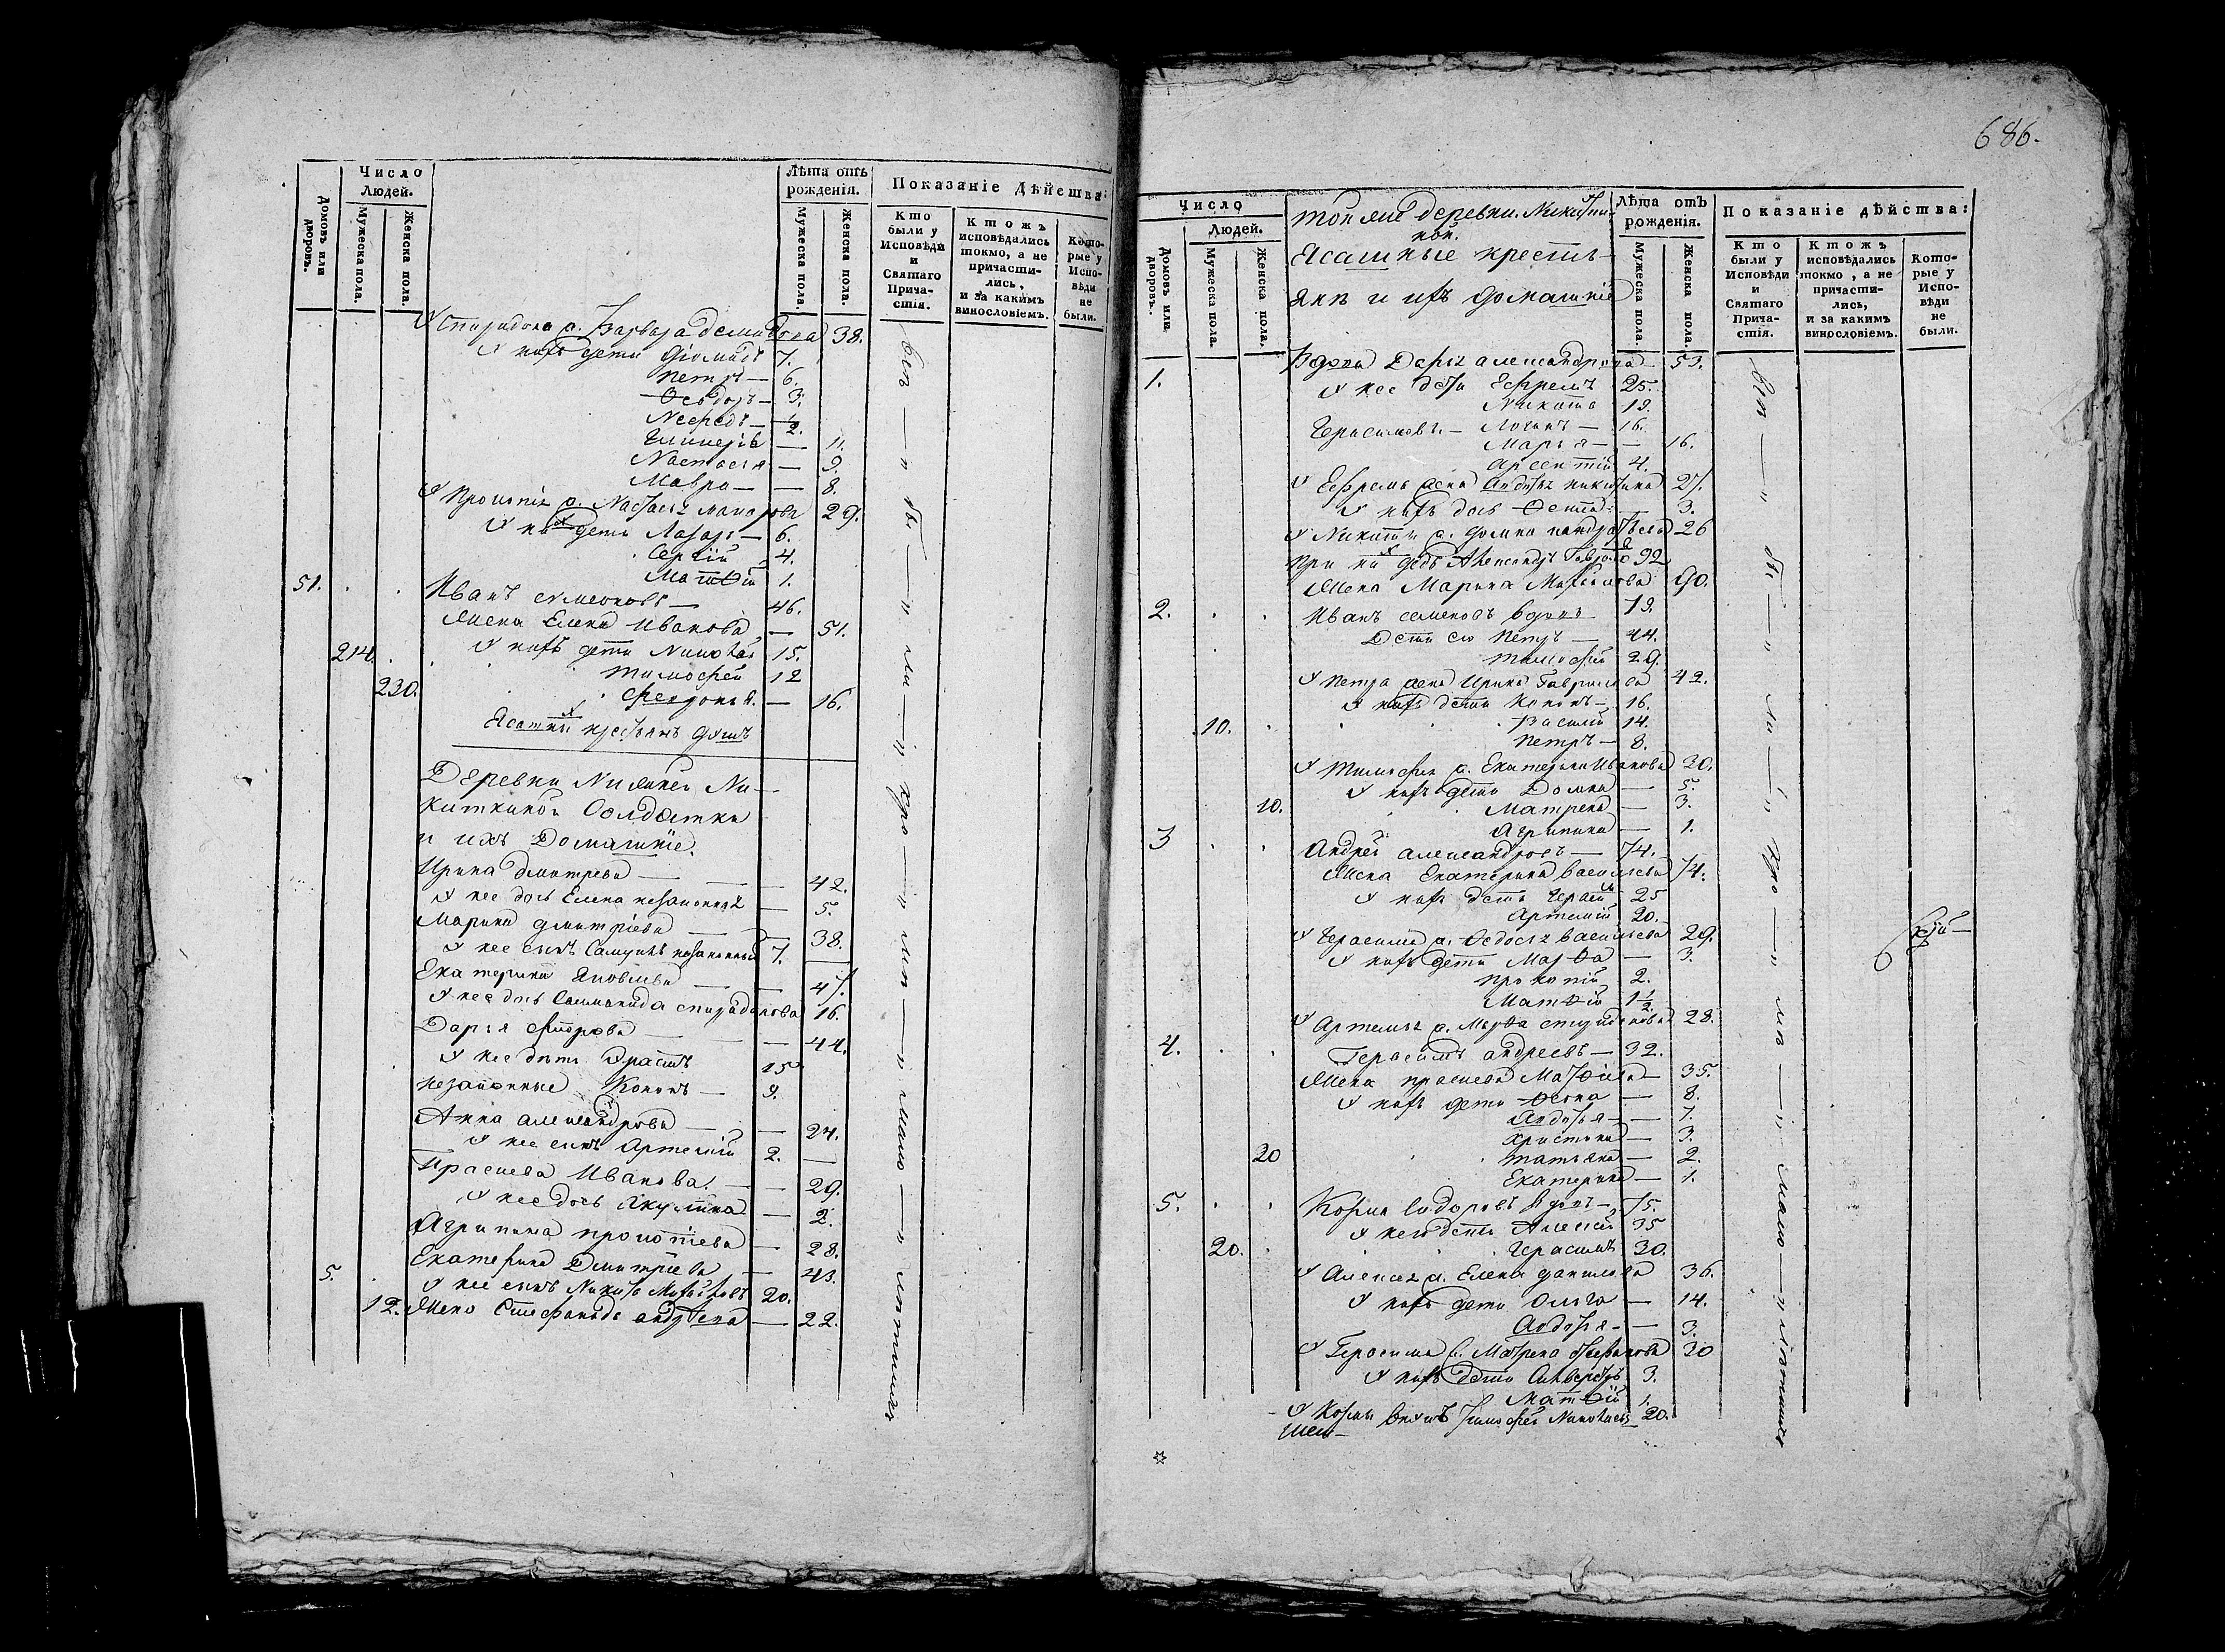 Число
Людей.
Домовъ или дворовъ.
Мужеска пола.
Женска пола.
Лѣта отъ рожденія.
Мужеска пола.
Женска пола.
Показаніе дѣйства:
Кто были у Исповѣди и Святаго Причастія.
Ктожъ исповѣдались токмо, а не причастились, и за какимъ винословіемъ.
Которые у Исповѣди не были.
Спиридона ж. Варвара Демидова 38.
У нихъ дети Діомидъ 7.
Петръ — 6.
Ѳеодоръ — 3.
Нефедъ — 1/2.
Гликерія — 11.
Настасья — 9.
Мавра — 8.
У Прокопія ж. Настасья Макарова 29.
У нихъ дети Лазарь — 6.
Сергій 4.
Матѳій 1.
51. Иванъ Симеоновъ — 46.
Жена Елена Иванова — 51.
У нихъ дети Николай 15.
214. Тимофей 12
230. Февронья — 16.
Ясашныхъ крестьянъ душъ
Деревни Нижней Никиткиной Солдатки
и ихъ Домашніе.
Ирина Дмитрева — 42.
У нее дочь Елена незаконная — 5.
Марина Дмитріева — 38.
У нее сынъ незаконный 7.
Екатерина Яковлева — 47.
У нее дочь Соломонида Спиридонова 16.
Дарья — 44.
У нее дети 15
незаконные Кононъ — 9.
Анна Александрова — 24.
У нее сынъ Артемій 2.
Прасковья Иванова — 29.
У нее дочь Акулина — 2.
Агрипина Прокопіева — 28.
5. Екатерина Дмитріева — 43.
У нее сынъ Никита 20.
12. Жена Стефанида Андреева — 22.
вси — были — у — мало — лѣтныхъ
686.
Число
Людей.
Домовъ или дворовъ.
Мужеска пола.
Женска пола.
Тои же деревни Никиткиной.
Ясашные крестьяне и ихъ домашніе
Лѣта отъ рожденія.
Мужеска пола.
Женска пола.
Показаніе дѣйства:
Кто были у Исповѣди и Святаго Причастія.
Ктожъ исповѣдались токмо, а не причастились, и за какимъ винословіемъ.
Которые у Исповѣди не были.
1. Вдова Дарья Александрова 53.
У нее дети Ефремъ 25.
Никита 19.
Герасимовъ — 16.
Марья — 16.
Арсентій 4.
У Ефрема жена Авдотья Никитина 27.
У нихъ дочь 3.
У Никиты ж. Домна Кандратьева 26
При нихъ дедъ Александръ Гавриловъ 92
Жена Марина 90.
2. Иванъ Семеновъ вдовъ 79.
Дети его Петръ — 44.
Тимофій 29.
У Петра жена Ирина Гаврилова 42.
У нихъ дети Кононъ — 16.
10. Василій 14.
Петръ — 8.
У Тимофея ж. Екатерина Иванова 30.
У нихъ дети Домна — 5.
10. Матрена — 3.
Агрипина — 1.
3 Андрей Александровъ — 74.
Жена Екатерина Васильева 74.
У нихъ дети Герасим 25
Артемій 20.
У Герасима ж. Ѳедосья Васильева 29.
У нихъ дети Марѳа — 3.
Прокопій 2.
Матѳій 1 1/2.
У Артемья ж. Марѳа Спиридонова 28.
4. Герасимъ Андреевъ — 32.
Жена 35.
У нихъ дети 8.
Авдотья — 7.
Христина — 3.
20 Татьяна — 2.
Екатерина — 1.
5. Козма Сидоровъ вдовъ — 75.
У него дети Алексей 35
20. Герасимъ 30.
У Алексея ж. Елена Данилова 36.
У нихъ дети Ольга — 14.
Авдотья — 3.
У Герасима ж. Матрена Стефанова 30
У нихъ дети 3.
Матѳій 1.
У Козмы внукъ Тимофей 20.
Жен—